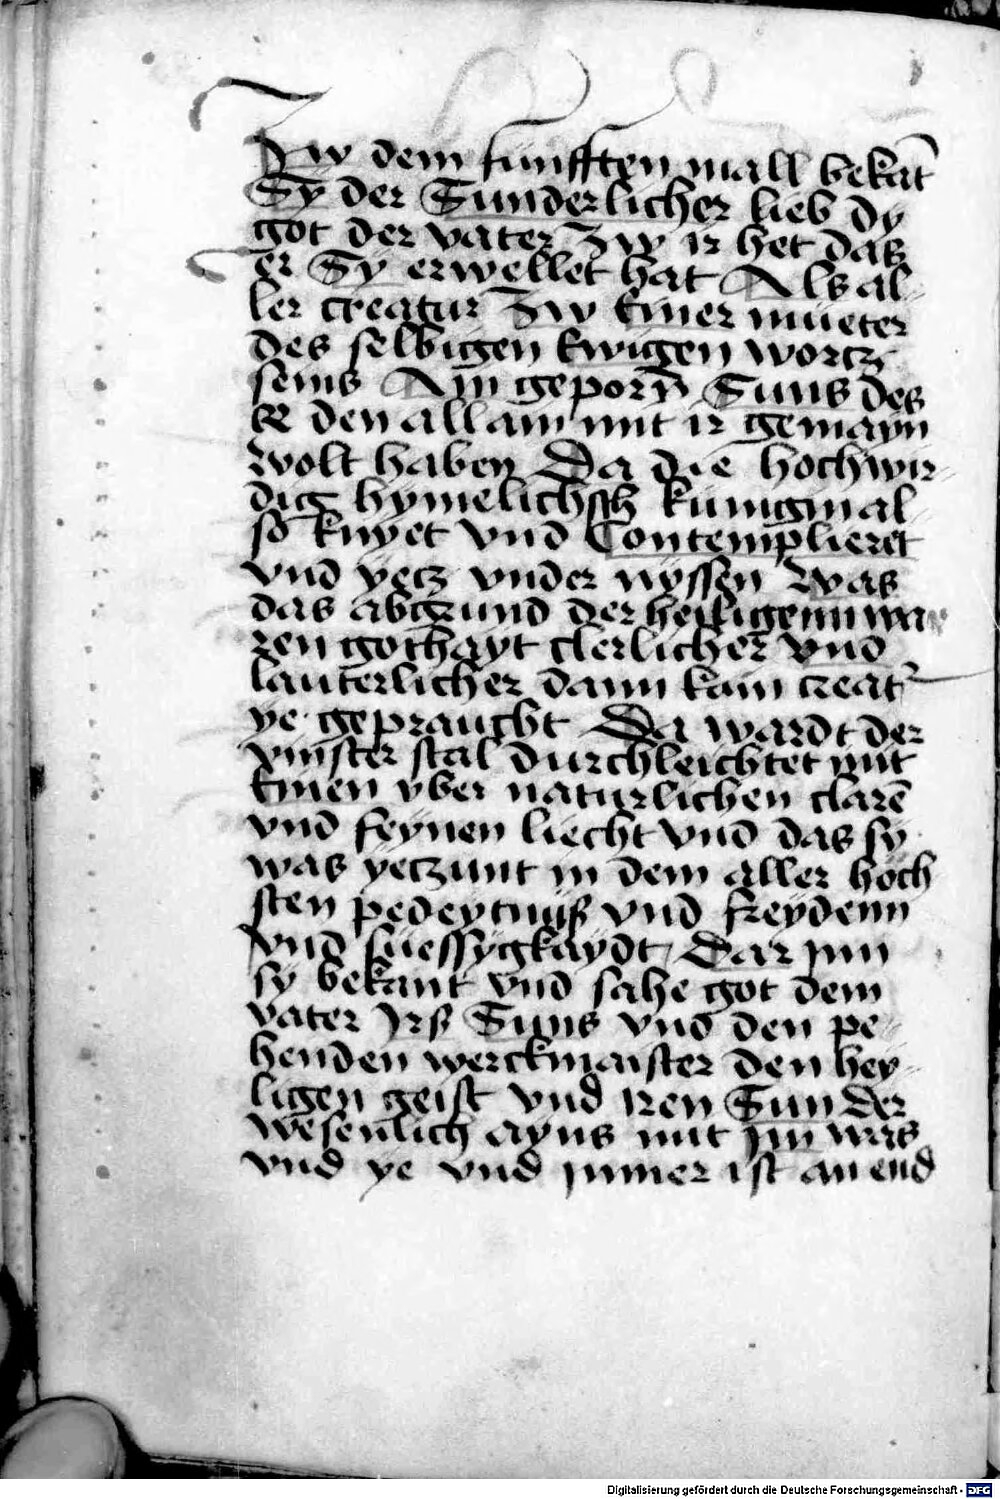 Zw dem funfften mall bekāt
Sy der Sunderlicher lieb dy
got der vater zw ir het das
er Sy erwellet hat Als al-
ler creatur zw Einer mueter
des selbigen Ewigen wortz
seins Ain geporn̄ Suns des
er den allain mit ir gemayn
wolt haben Da die hochwir-
dig hymelichsch kunigin al-
so knyet vnd Contemplieret
vnd yetz vnder wyssen was
das abgrund der heiligenn wa
ren gothayt clerlicher vnd
lauterlicher dann kain creat᷑
ye gepraucht Da wardt der
vinster stal durchleichtet mit
Einen vber naturlichen clarē
vnd feynen liecht vnd das sy
was yetzunt in dem aller hoch
sten pedeytnuß vnd freydenn
vnd suessygkaydt Dar jnn
sy bekant vnd sahe got dem
vater Jrß Suns vnd den pe-
henden werckmaister den hey-
ligen geist vnd iren Sun der
wesenlich ayns mit jm was
vnd ye vnd jmmer ist an end
Digitalisierung gefördert durch die Deutsche Forschungsgemeinschaft - DFG